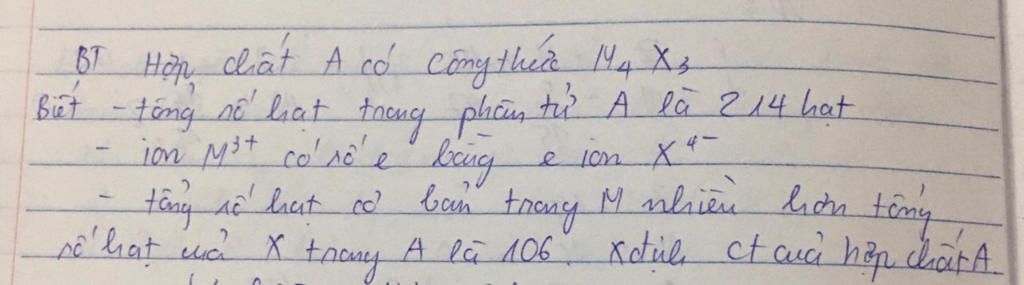 BT Hợp chất A có công thức M₄X₃
Biết - tổng số hạt trong phân tử A là 214 hạt
- ion M³⁺ có số e bằng e ion X⁴⁻
- tổng số hạt cơ bản trong M nhiều hơn tổng
số hạt của X trong A là 106. Xđịnh ct của hợp chất A.